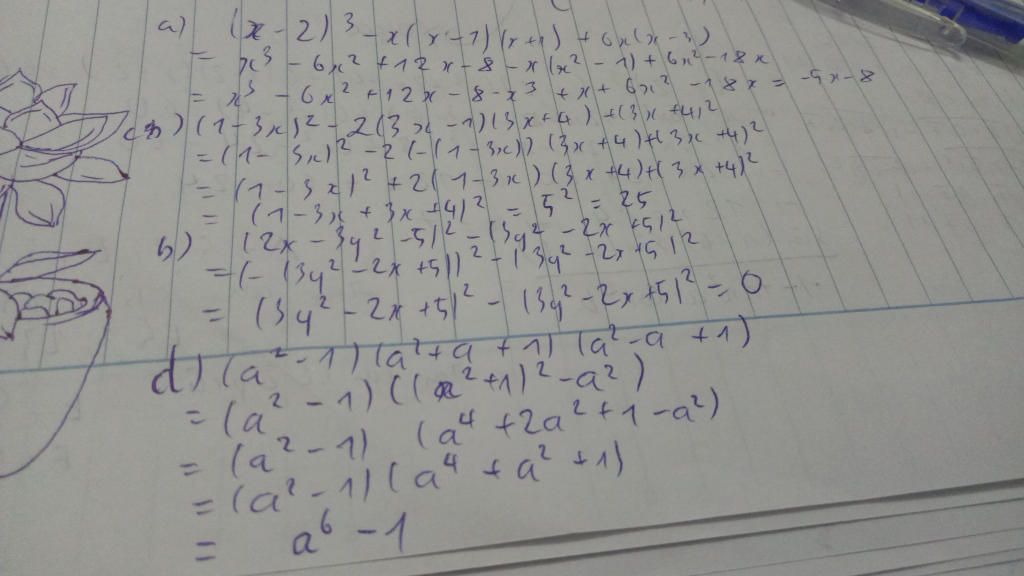 a) (x - 2)³ - x(x - 1)(x + 1) + 6x(x - 3)
= x³ - 6x² + 12x - 8 - x(x² - 1) + 6x² - 18x
= x³ - 6x² + 12x - 8 - x³ + x + 6x² - 18x = -5x - 8
c) (1 - 3x)² - 2(3x - 1)(3x + 4) + (3x + 4)²
= (1 - 3x)² - 2(-(1 - 3x))(3x + 4) + (3x + 4)²
= (1 - 3x)² + 2(1 - 3x)(3x + 4) + (3x + 4)²
= (1 - 3x + 3x + 4)² = 5² = 25
b) (2x - 3y² - 5)² - (3y² - 2x + 5)²
= (-(3y² - 2x + 5))² - (3y² - 2x + 5)²
= (3y² - 2x + 5)² - (3y² - 2x + 5)² = 0
d) (a² - 1)(a² + a + 1)(a² - a + 1)
= (a² - 1)((a² + 1)² - a²)
= (a² - 1) (a⁴ + 2a² + 1 - a²)
= (a² - 1)(a⁴ + a² + 1)
= a⁶ - 1